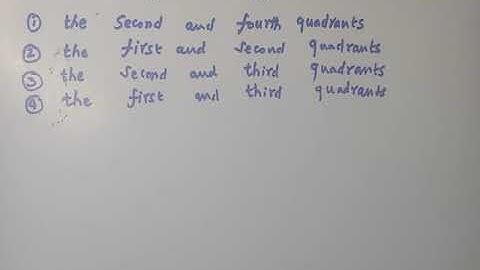 ① the second and fourth quadrants
② the first and second quadrants
③ the second and third quadrants
④ the first and third quadrants